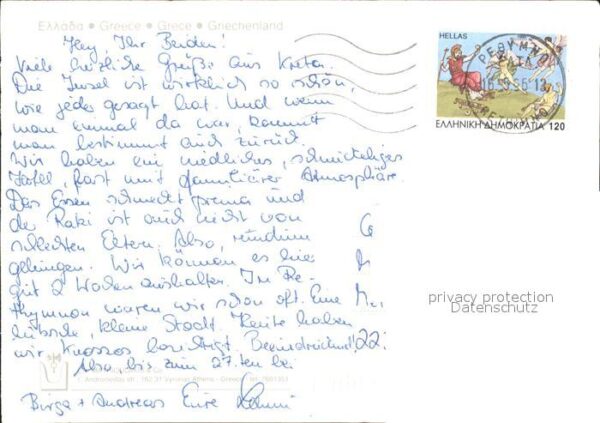 Ελλάδα • Greece • Grèce • Griechenland
Hey, Ihr Beiden!
Viele herzliche Grüße aus Kreta.
Die Insel ist wirklich so schön,
wie jeder gesagt hat. Und wenn
man einmal da war, kommt
man bestimmt auch zurück.
Wir haben ein niedliches, schnuckeliges
Hotel, fast mit familiärer Atmosphäre.
Das Essen schmeckt prima und
der Raki ist auch nicht von
schlechten Eltern. Also, rundum
gelungen. Wir können es hier
gut 2 Wochen aushalten. In Re-
thymnon waren wir schon oft. Eine
hübsche, kleine Stadt. Heute haben
wir Knossos besichtigt. Beeindruckend!
Also bis zum 27.ten bei
Birga + Andreas Eure
HELLAS
ΕΛΛΗΝΙΚΗ ΔΗΜΟΚΡΑΤΙΑ 120
ΡΕΘΥΜΝΟ
RETHYMNO
22
privacy protection
Datenschutz